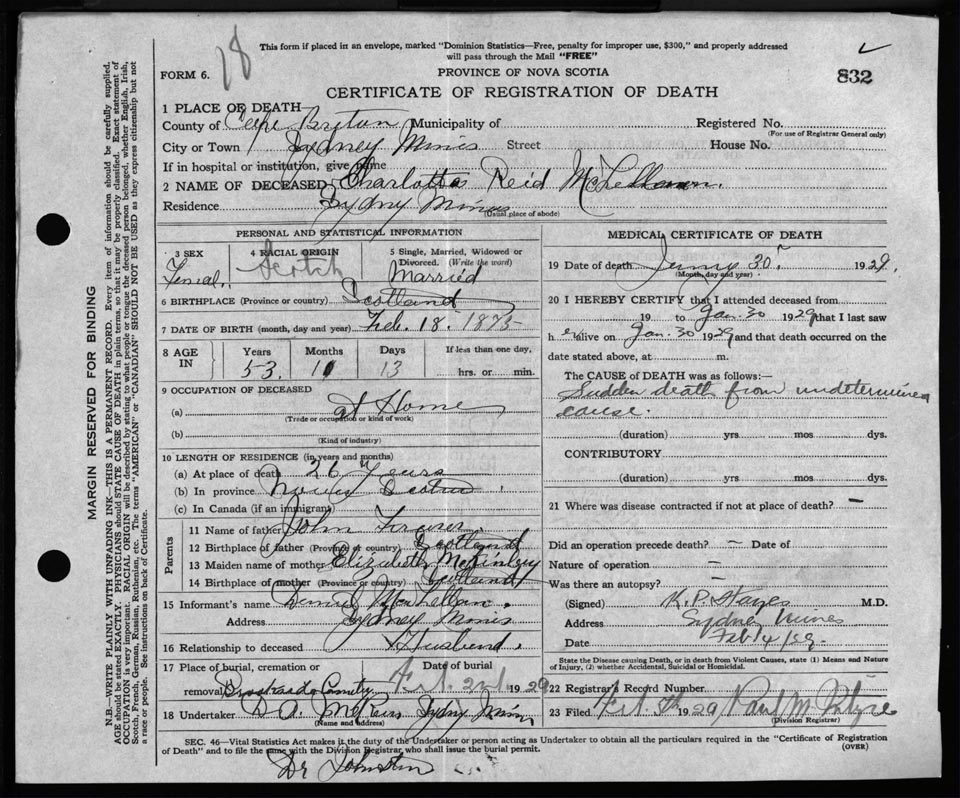 This form if placed in an envelope, marked "Dominion Statistics—Free, penalty for improper use, $300," and properly addressed
will pass through the Mail "FREE"
FORM 6.
PROVINCE OF NOVA SCOTIA
832
CERTIFICATE OF REGISTRATION OF DEATH
1 PLACE OF DEATH
County of Cape Bryton Municipality of Registered No.
(For use of Registrar General only)
City or Town Sydney Mines Street House No.
If in hospital or institution, give name
2 NAME OF DECEASED Charlotte Reid McLellan.
Residence Sydney Mines
(Usual place of abode)
PERSONAL AND STATISTICAL INFORMATION
3 SEX 4 RACIAL ORIGIN 5 Single, Married, Widowed or
Divorced. (Write the word)
Scotch Married
6 BIRTHPLACE (Province or country) Scotland
7 DATE OF BIRTH (month, day and year) Feb. 18. 1875
8 AGE IN Years Months Days If less than one day,
53 11 13 hrs. or min.
9 OCCUPATION OF DECEASED
(a) at Home
(Trade or occupation or kind of work)
(b)
(Kind of industry)
10 LENGTH OF RESIDENCE (in years and months)
(a) At place of death 26 Years
(b) In province Nova Scotia
(c) In Canada (if an immigrant)
Parents
11 Name of father John
12 Birthplace of father (Province or country) Scotland
13 Maiden name of mother Elizabeth McKinley
14 Birthplace of mother (Province or country) Scotland
15 Informant's name MacLellan.
Address Sydney Mines
16 Relationship to deceased Husband.
17 Place of burial, cremation or Date of burial
removal 2nd 1929
18 Undertaker D. A. Sydney Mines
(Name and address)
MEDICAL CERTIFICATE OF DEATH
19 Date of death 30. 1929.
(Month, day and year)
20 I HEREBY CERTIFY that I attended deceased from
19 to Jan. 30 1929 that I last saw
h er alive on Jan. 30 1929 and that death occurred on the
date stated above, at m.
The CAUSE of DEATH was as follows:
Sudden death from undetermined
cause.
(duration) yrs mos dys.
CONTRIBUTORY
(duration) yrs mos dys.
21 Where was disease contracted if not at place of death? —
Did an operation precede death? — Date of
Nature of operation —
Was there an autopsy? —
(Signed) K. P. Hayes M.D.
Address Sydney Mines
Date Feb 4/29
State the Disease causing Death, or in death from Violent Causes, state (1) Means and
Nature of Injury, (2) whether Accidental, Suicidal or Homicidal.
22 Registrar's Record Number
23 Filed 1929 Paul M.
(Division Registrar)
SEC. 46—Vital Statistics Act makes it the duty of the Undertaker or person acting as Undertaker to obtain all the particulars required in the "Certificate of Registration
of Death" and to file the same with the Division Registrar who shall issue the burial permit. (OVER)
Dr Johnston
MARGIN RESERVED FOR BINDING
N.B.—WRITE PLAINLY WITH UNFADING INK—THIS IS A PERMANENT RECORD. Every item of information should be carefully supplied.
AGE should be stated EXACTLY. PHYSICIANS should STATE CAUSE OF DEATH in plain terms, so that it may be properly classified. Exact statement of
OCCUPATION is very important. RACIAL ORIGIN will be described by stating to what people or tongue the deceased person belonged, whether English, Irish,
Scotch, French, German, Russian, Ruthenian, etc. The terms "AMERICAN" or "CANADIAN" SHOULD NOT BE USED as they express citizenship but not
a race or people. See instructions on back of Certificate.